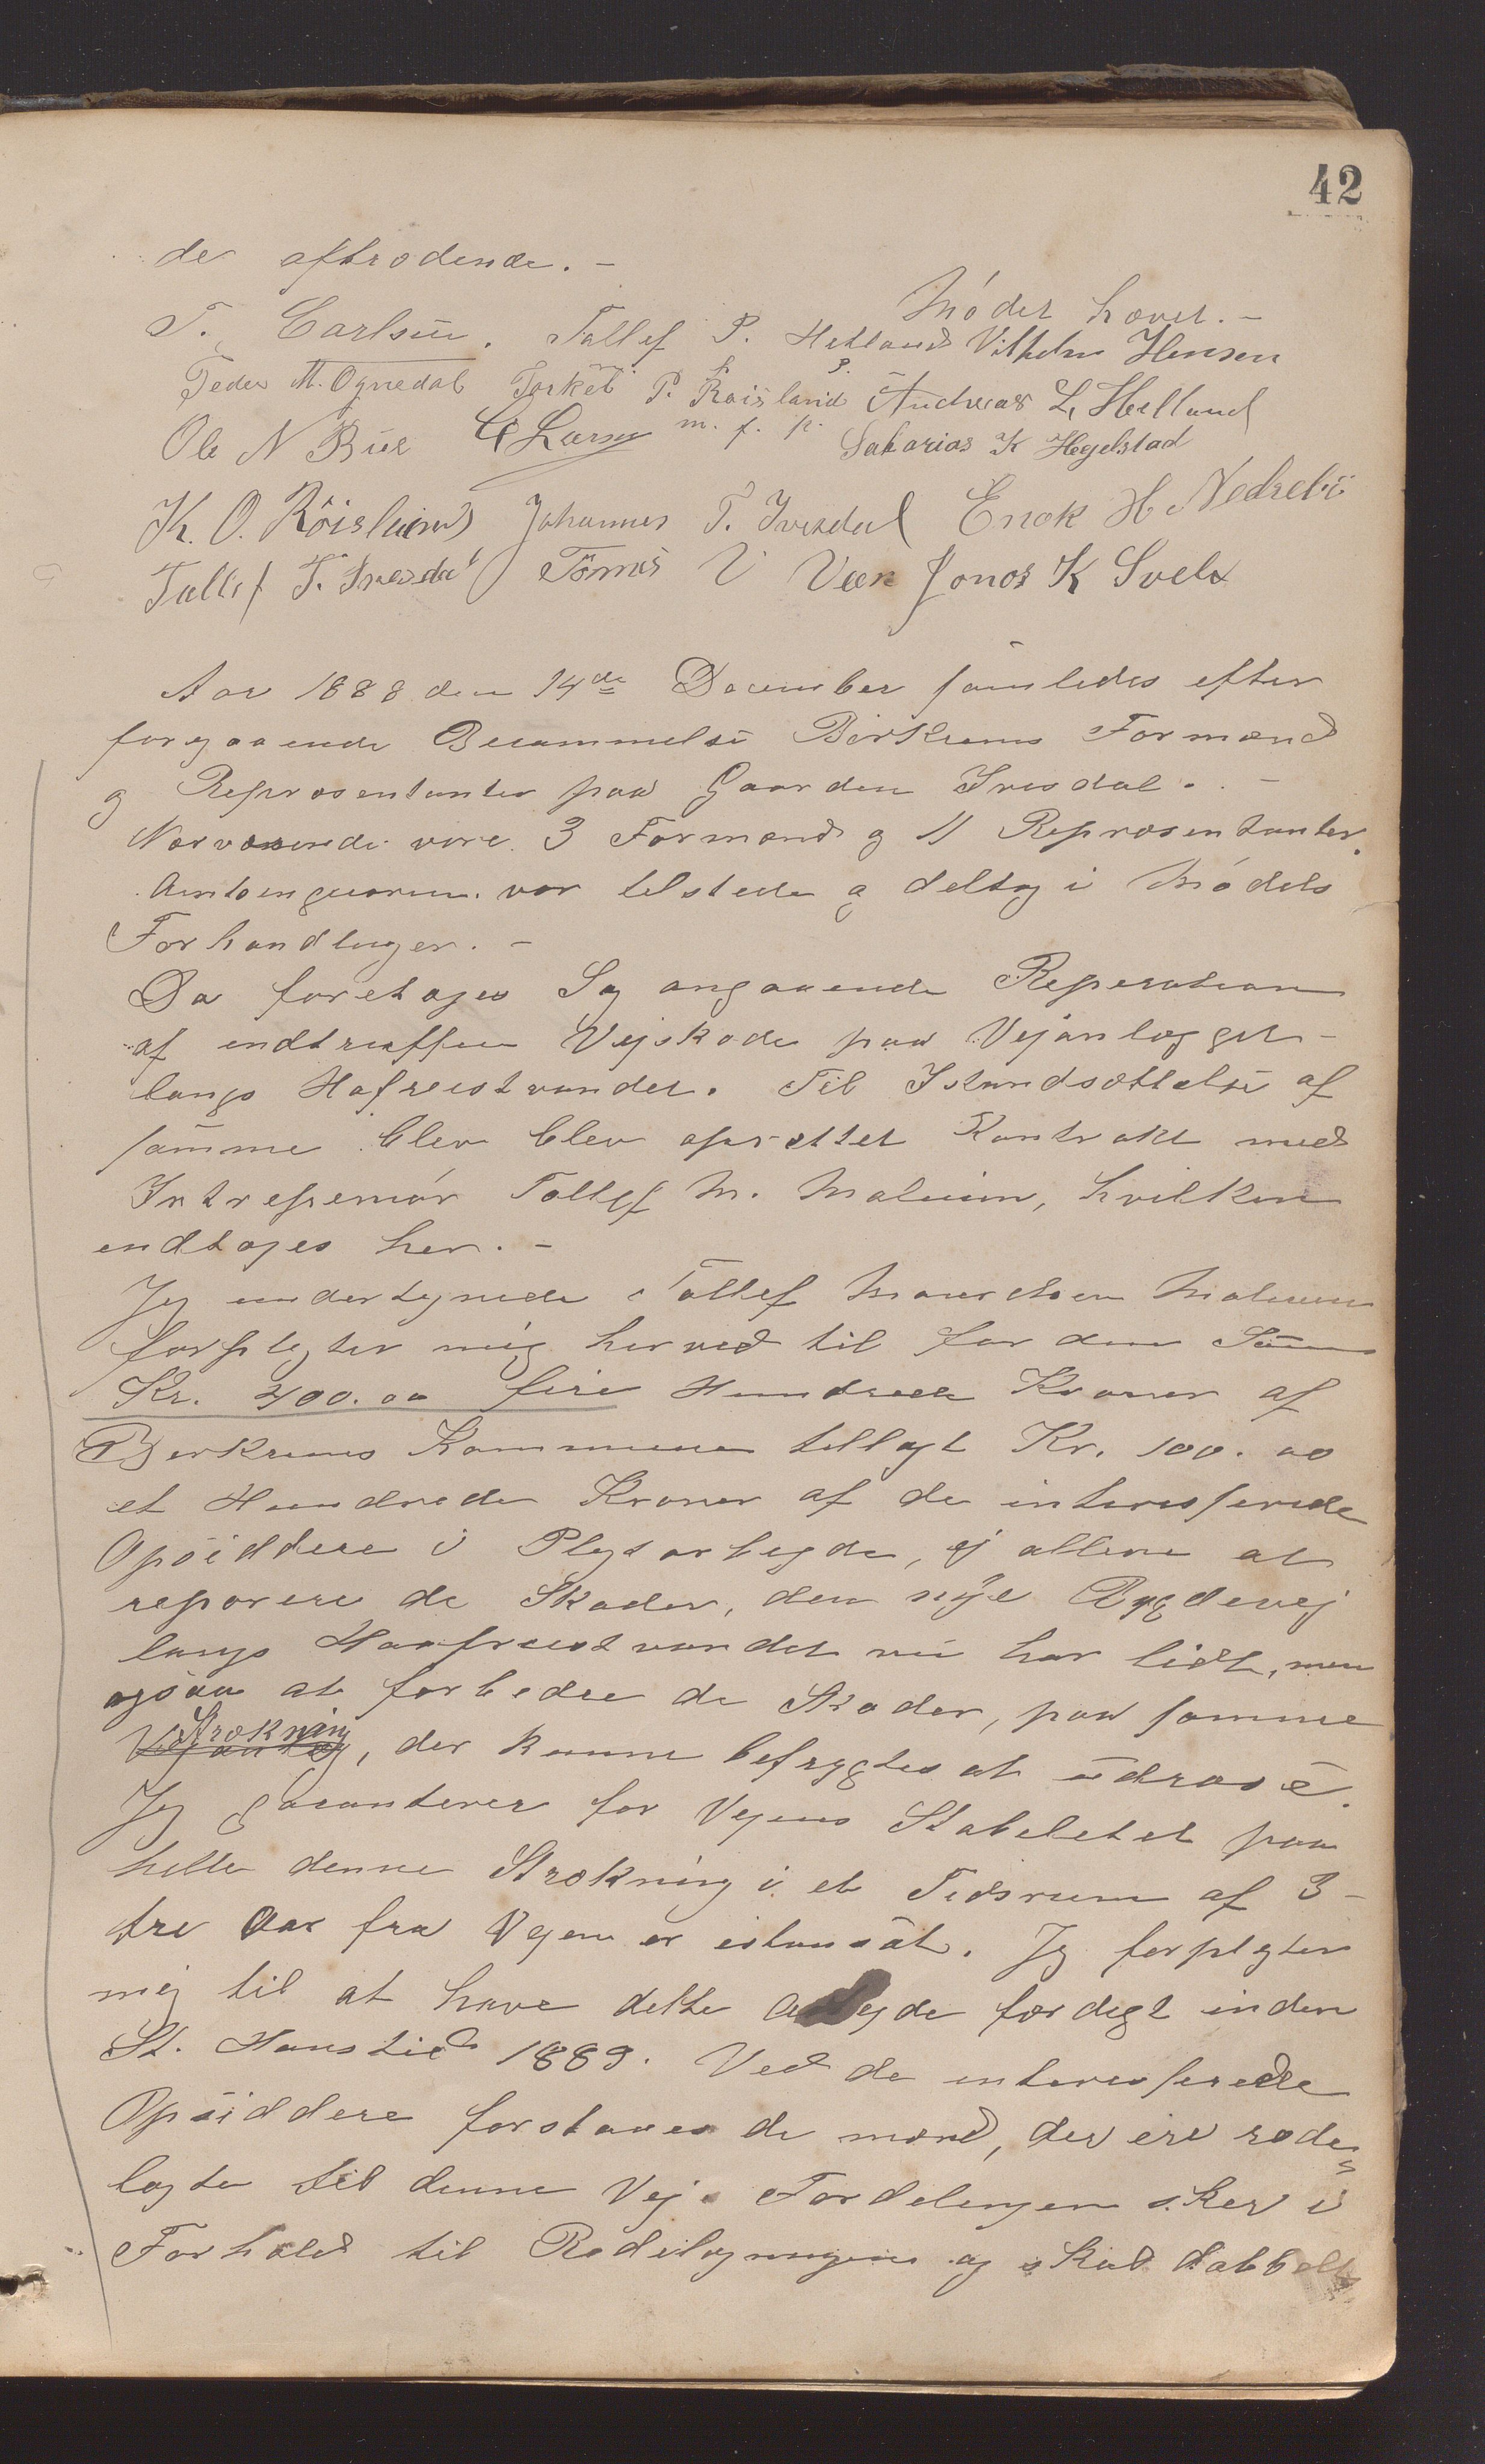 42
de aftrædende. -
Mødet hævet. -
T. Carlsen. Tallef P. Hetland Vilhelm Hensen
Peder M. Ognedal Torkel P. Røisland Andreas L. Helland
m. f. p.
Ole N Bue G Larsen Sakarias K Hegelstad
K. O. Röisland Johannes T. Ivesdal Enok H Nedrebö
Tallef T. Ivesdal Tönnes V Veen Jonas K Svela
Aar 1888 den 14de December samledes efter
foregaaende Berammelse Birkrems Formænd
og Repræsentanter paa Gaarden Ivesdal. -
Nærværende vare 3 Formænd og 11 Repræsentanter.
Amtsingeniøren var tilstede og deltog i Mødets
Forhandlinger. -
Da foretages Sag angaaende Reperation
af indtruffen Vejskade paa Vejanlægget
langs Hafrestvandet. Til Istandsættelse af
samme blev blev oprettet Kontrakt med
Intreprenør Tallef M. Maluim, hvilken
indtages her. -
Jeg undertegnede Tallef Mauritsen Maluim
forpligter mig herved til for den Sum
Kr. 400.00 fire Hundrede Kroner af
Berkrems Kommune tillagt Kr. 100.00
et Hundrede Kroner af de interesserede
Opsiddere i Pligtarbejde, ej allene at
reparere de Skader, den nye Bygdevej
langs Haafrestvandet nu har lidt, men
ogsaa at forbedre de Skader, paa samme
Strækning, der kunne befrygtes at udrase.
Jeg garanterer for Vejens Stabilitet paa
hele denne Strækning i et Tidsrum af 3 -
tre Aar fra Vejen er istansat. Jeg forpligter
mig til at have dette Arbejde færdigt inden
St. Hanstid 1889. Ved de interesserede
Opsiddere forstaaes de mænd, der ere rode=
lagte til denne Vej. Fordelingen sker i
Forhold til Rodelægningen og skal dobbelt